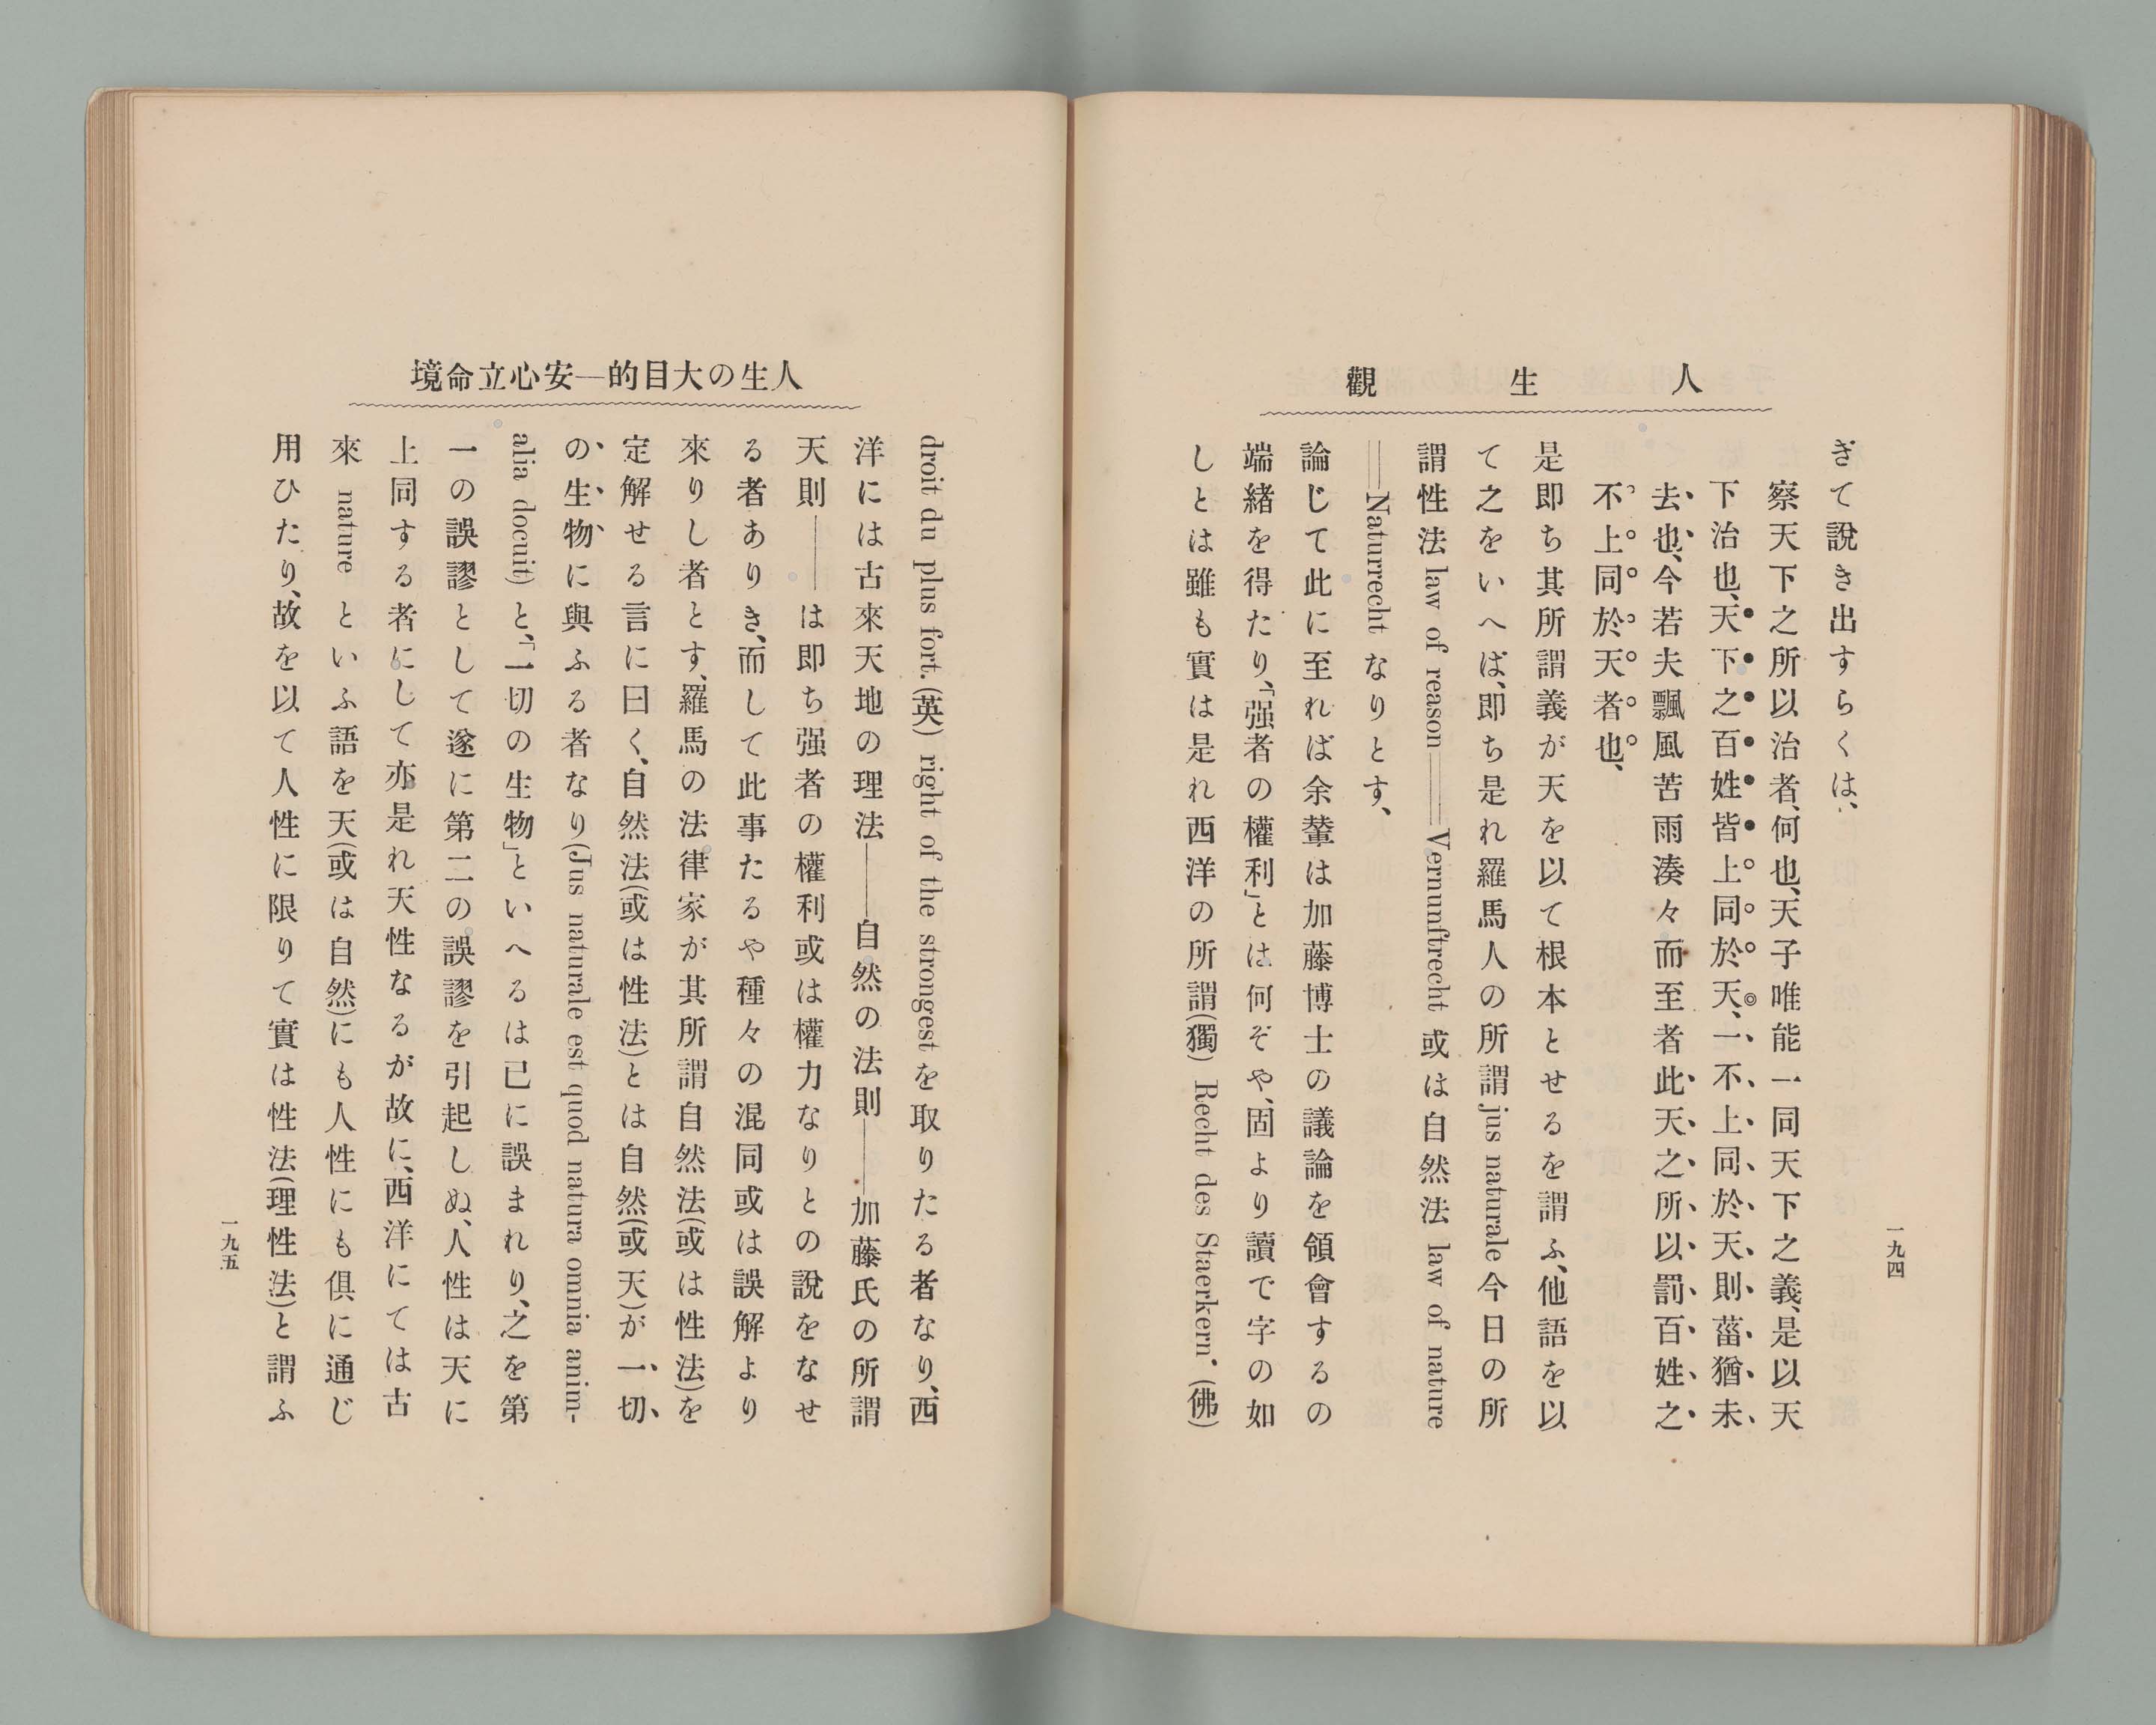 人生觀
一九四
ぎて說き出すらくは、
察天下之所以治者、何也、天子唯能一同天下之義、是以天
下治也、天下之百姓皆上同於天、一不上同於天、則菑猶未
去也、今若夫飄風苦雨湊々而至者、此天之所以罰百姓之
不上同於天者也、
是即ち其所謂義が天を以て根本とせるを謂ふ、他語を以
て之をいへば、即ち是れ羅馬人の所謂 jus naturale 今日の所
謂性法 law of reason——Vernunftrecht 或は自然法 law of nature
——Naturrecht なりとす、
論じて此に至れば余輩は加藤博士の議論を領會するの
端緒を得たり、「强者の權利」とは何ぞや、固より讀で字の如
しとは雖も實は是れ西洋の所謂(獨) Recht des Staerkern. (佛)
人生の大目的—安心立命境
droit du plus fort. (英) right of the strongest を取りたる者なり、西
洋には古來天地の理法——自然の法則——加藤氏の所謂
天則——は即ち强者の權利或は權力なりとの說をなせ
る者ありき、而して此事たるや種々の混同或は誤解より
來りし者とす、羅馬の法律家が其所謂自然法(或は性法)を
定解せる言に曰く、自然法(或は性法)とは自然(或天)が一切
の生物に與ふる者なり(Jus naturale est quod natura omnia anim-
alia docuit)と、「一切の生物」といへるは已に誤まれり、之を第
一の誤謬として遂に第二の誤謬を引起しぬ、人性は天に
上同する者にして亦是れ天性なるが故に、西洋にては古
來 nature といふ語を天(或は自然)にも人性にも俱に通じ
用ひたり、故を以て人性に限りて實は性法(理性法)と謂ふ
一九五